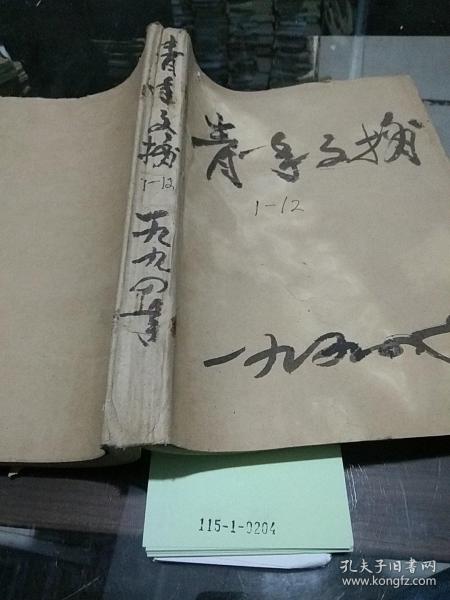 青年文摘
1-12
一九九四年
青年文摘
1-12
一九九四
115-1-0204
孔夫子旧书网
www.kongfz.com